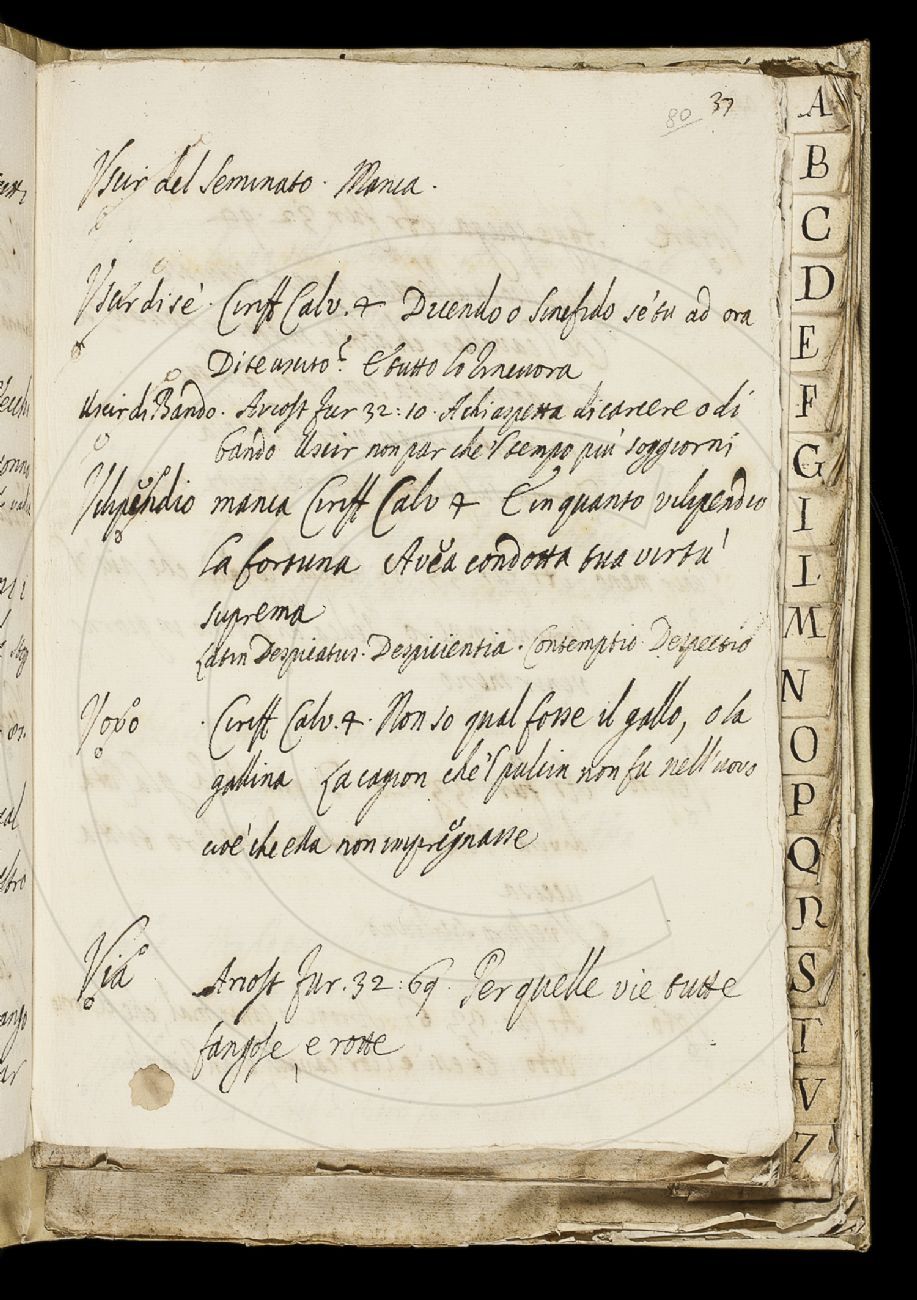 80 37
Uscir del Seminato. Manca.
Uscir di sè. Ciriff Calv. 4 Dicendo o Sinefido sè tu ad ora
Di te uscito? E tutto lo
Uscir di Bando. Ariost fur 32:10. A chi aspetta di carcere o di
bando Uscir non par che'l tempo più soggiorni
Vilipendio manca Ciriff Calv 4 E in quanto vilipendio
la fortuna Avea condotta sua virtu'
suprema
Latin Despicatus. Despicientia. Contemptio Despectio
Vovo. Ciriff Calv. 4. Non so qual fosse il gallo, o la
gallina La cagion che'l pulcin non fu nell'uovo
cioè che ella non impregnasse
Via Ariost fur. 32:69. Per quelle vie tutte
fangose e rotte
A
B
C
D
E
F
G
I
L
M
N
O
P
Q
R
S
T
V
Z